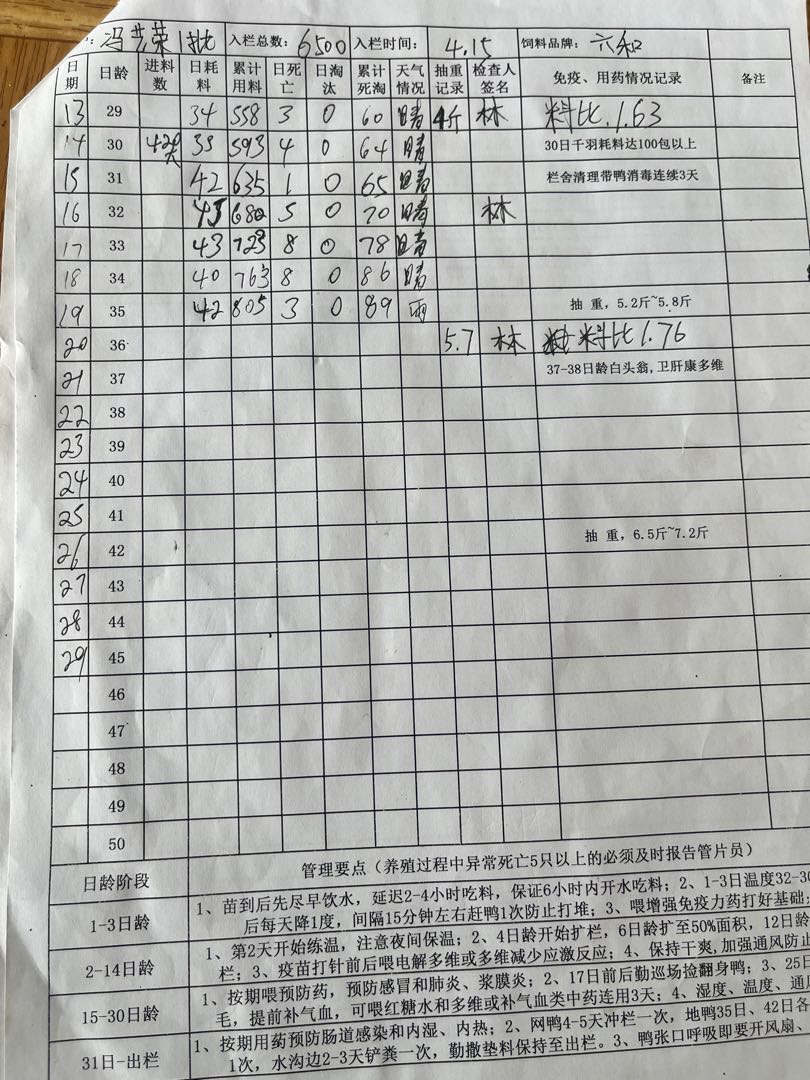 : 冯芸荣1批 入栏总数: 6500 入栏时间: 4.15 饲料品牌: 六和
日期 日龄 进料数 日耗料 累计用料 日死亡 日淘汰 累计死淘 天气情况 抽重记录 检查人签名 免疫、用药情况记录 备注
13 29 34 558 3 0 60 晴 4斤 林 料比.1.63
14 30 35 593 4 0 64 晴 30日千羽耗料达100包以上
15 31 42 635 1 0 65 晴 栏舍清理带鸭消毒连续3天
16 32 45 680 5 0 70 晴 林
17 33 43 723 8 0 78 晴
18 34 40 763 8 0 86 晴
19 35 42 805 3 0 89 雨 抽 重, 5.2斤~5.8斤
20 36 5.7 林 料比1.76
21 37 37-38日龄白头翁,卫肝康多维
22 38
23 39
24 40
25 41
26 42 抽 重, 6.5斤~7.2斤
27 43
28 44
29 45
46
47
48
49
50
日龄阶段 管理要点（养殖过程中异常死亡5只以上的必须及时报告管片员）
1-3日龄 1、苗到后先尽早饮水，延迟2-4小时吃料，保证6小时内开水吃料；2、1-3日温度32-30
后每天降1度，间隔15分钟左右赶鸭1次防止打堆；3、喂增强免疫力药打好基础；
2-14日龄 1、第2天开始练温，注意夜间保温；2、4日龄开始扩栏，6日龄扩至50%面积，12日龄
栏；3、疫苗打针前后喂电解多维或多维减少应激反应；4、保持干爽,加强通风防止
15-30日龄 1、按期喂预防药，预防感冒和肺炎、浆膜炎；2、17日前后勤巡场捡翻身鸭；3、25日
毛，提前补气血，可喂红糖水和多维或补气血类中药连用3天；4、湿度、温度、通
31日-出栏 1、按期用药预防肠道感染和内湿、内热；2、网鸭4-5天冲栏一次，地鸭35日、42日各
1次，水沟边2-3天铲粪一次，勤撒垫料保持至出栏。3、鸭张口呼吸即要开风扇、